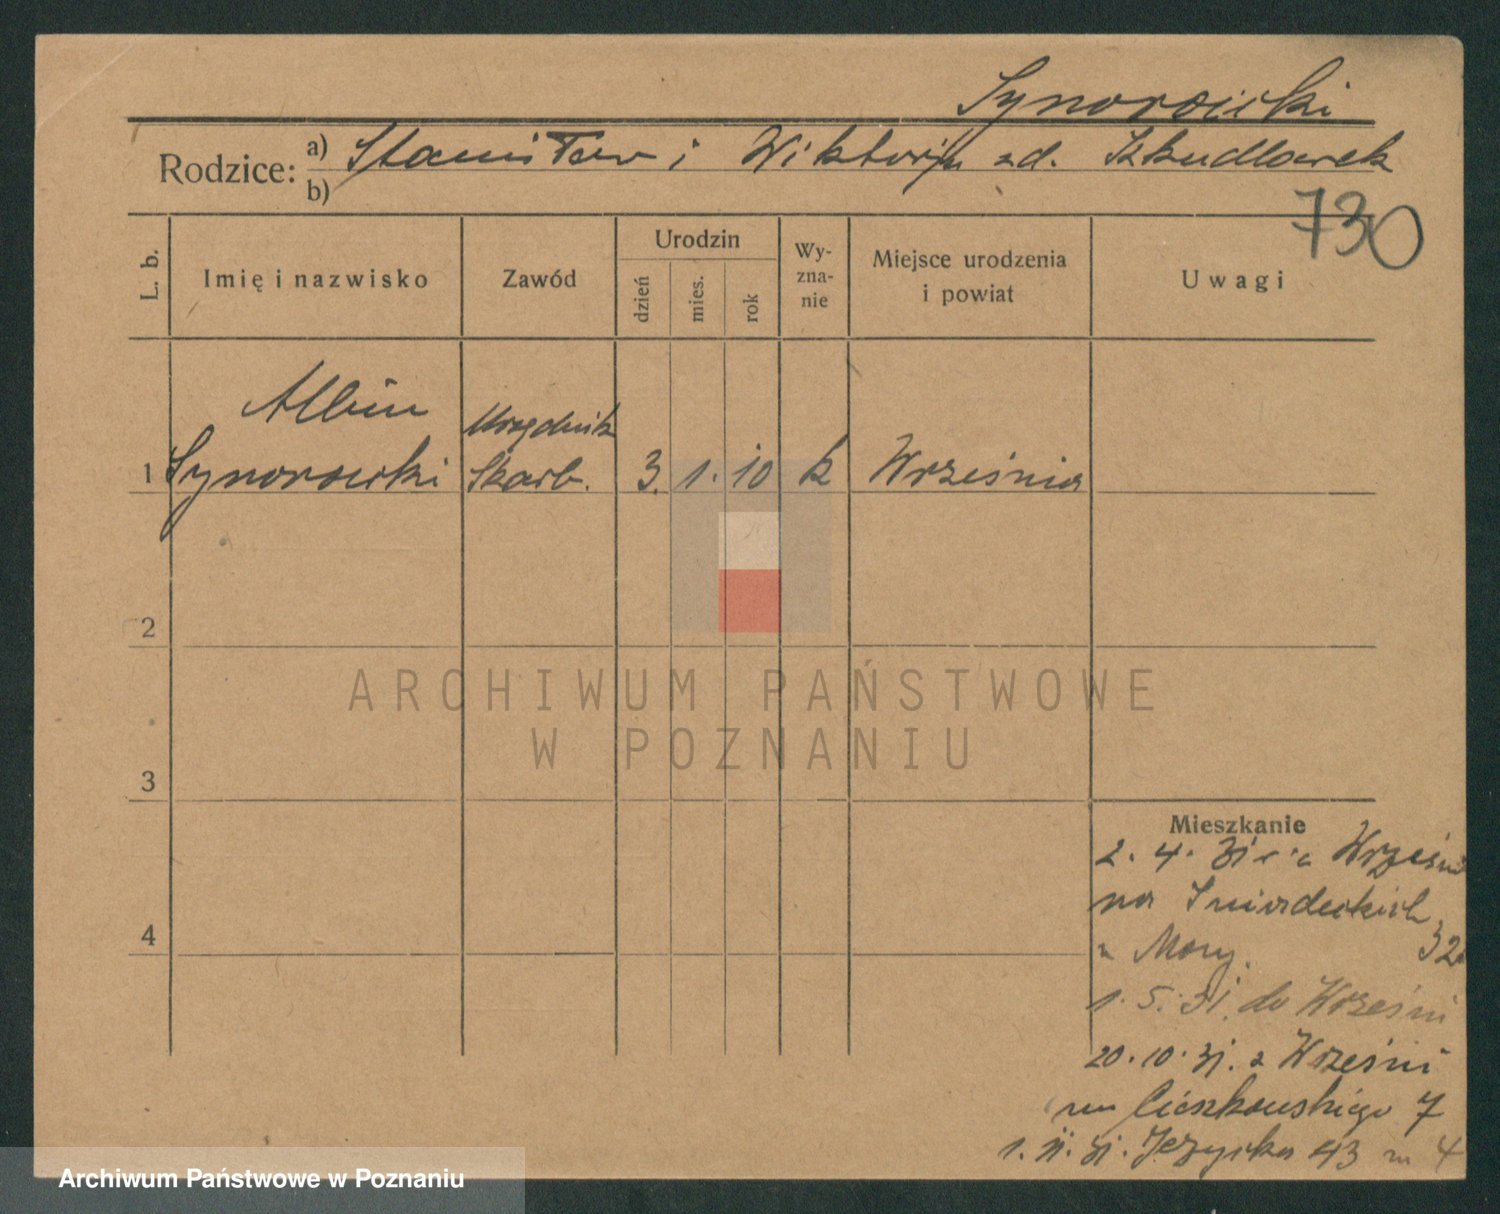 Synorowcki
Rodzice: a) Stanisław i Wiktorja zd. Szkudlarek
b)
730
L. b.
Imię i nazwisko
Zawód
Urodzin
dzień
mies.
rok
Wy-
zna-
nie
Miejsce urodzenia
i powiat
Uwagi
Albin
Urzędnik
1 Synorowcki Skarb. 3. 1. 10 k Września
2
3
4
ARCHIWUM PAŃSTWOWE
W POZNANIU
Mieszkanie
2. 4. 31 z Wrześni
na Śniadeckich
32
u Mory.
1. 5. 31. do Wrześni
20. 10. 31. z Wrześni
na Cieszkowskiego 7
1. 11. 31. Jeżycka 43 m 4
Archiwum Państwowe w Poznaniu